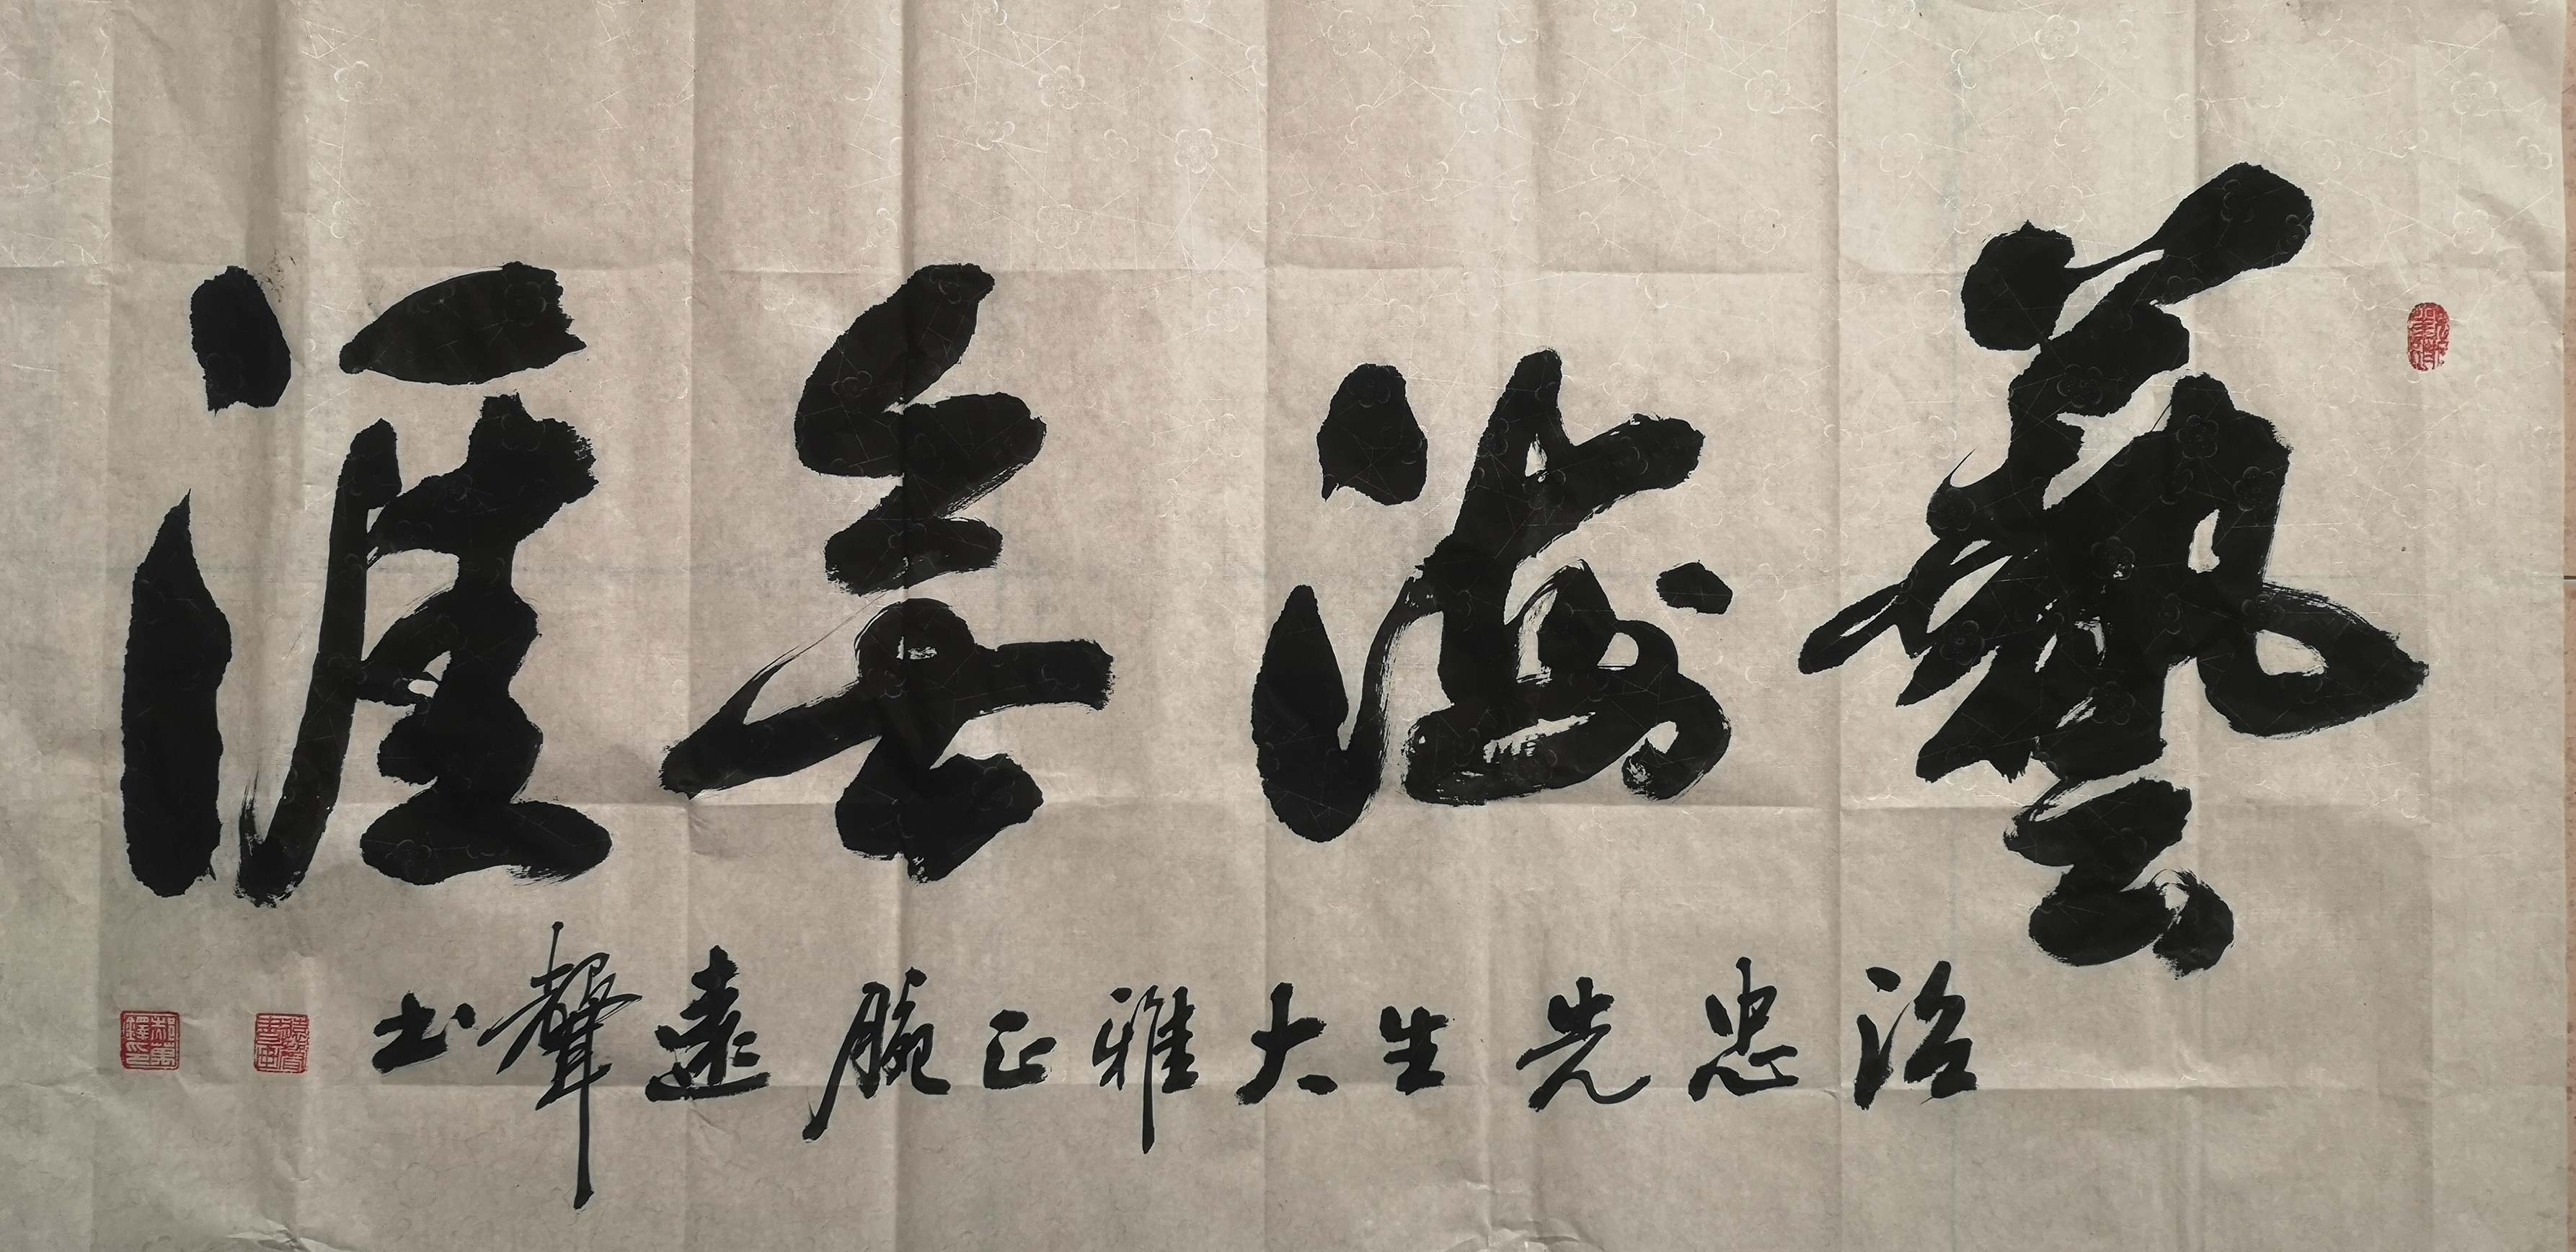 藝海無涯
治忠先生大雅正腕遠聲书